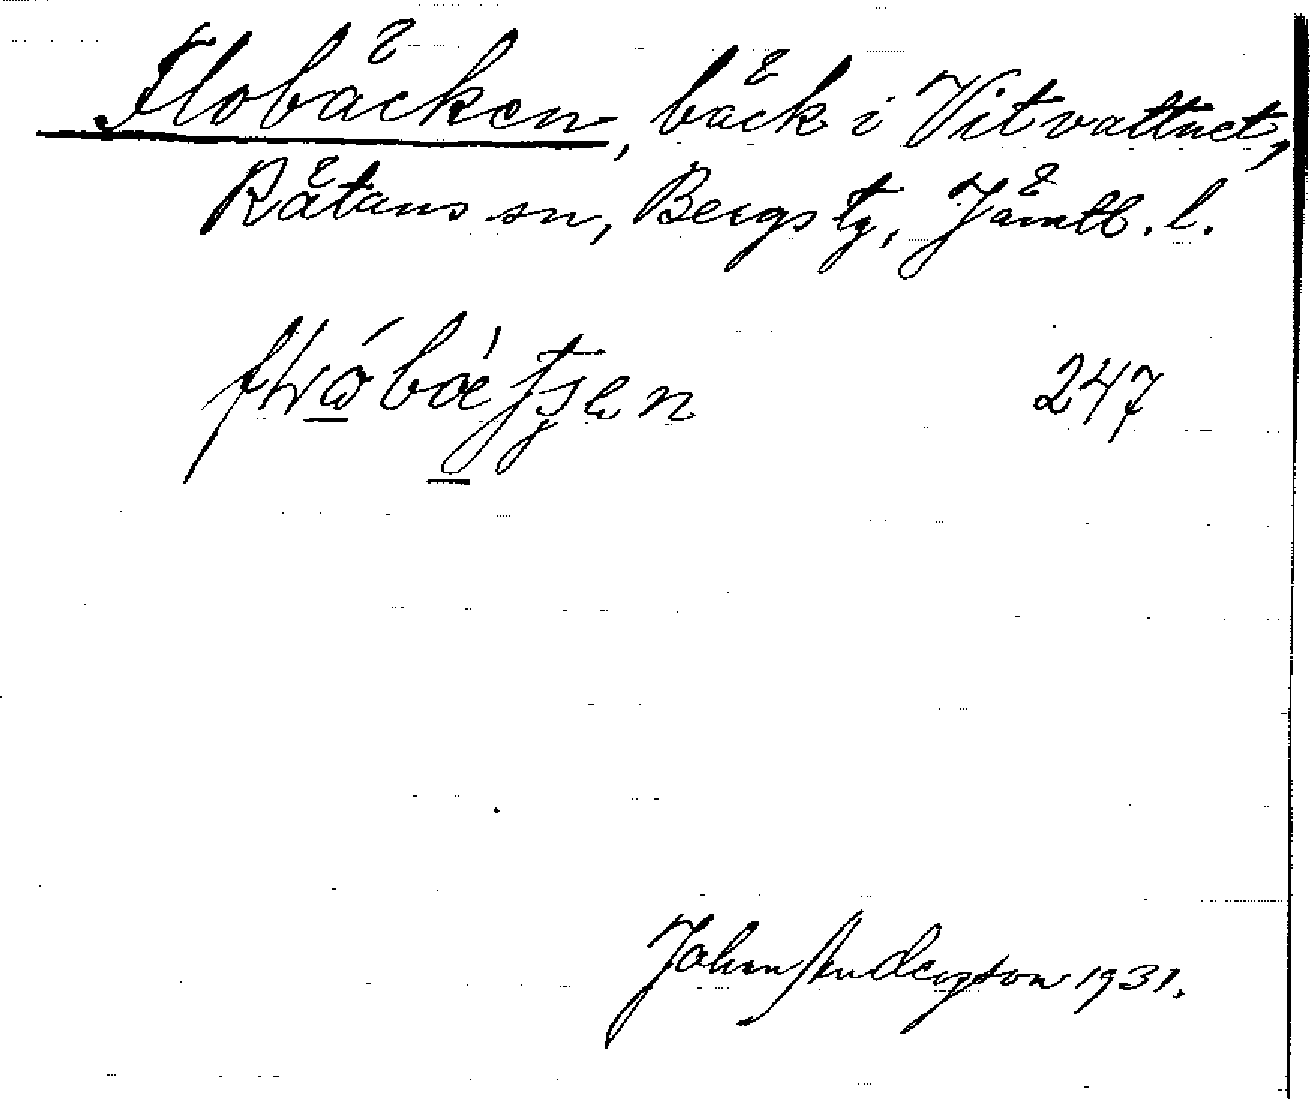 Flobäcken, bäck i Vitvattnet,
Rätans sn, Bergs tg, Jämtl. l.
247
Johan Anderson 1931.